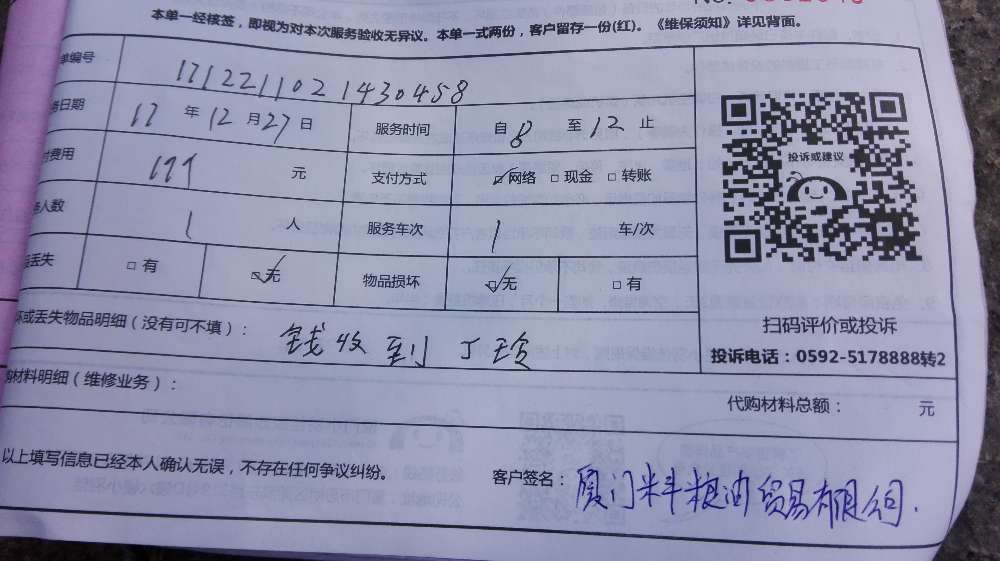 本单一经核签，即视为对本次服务验收无异议。本单一式两份，客户留存一份(红)。《维保须知》详见背面。
单编号 1712211021430458
务日期 17 年 12 月 27 日 服务时间 自 8 至 12 止
费用 177 元 支付方式 网络 现金 转账
人数 1 人 服务车次 1 车/次
丢失 有 无 物品损坏 无 有
投诉或建议
扫码评价或投诉
投诉电话：0592-5178888转2
坏或丢失物品明细（没有可不填）： 钱收到 丁玲
购材料明细（维修业务）：
代购材料总额： 元
以上填写信息已经本人确认无误，不存在任何争议纠纷。
客户签名： 厦门 粮油贸易有限公司.